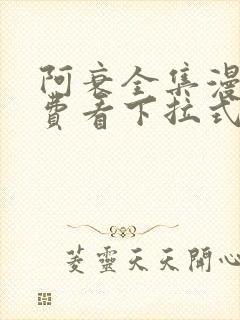 阿衰全集漫
费看下拉式
菱靈天天開心